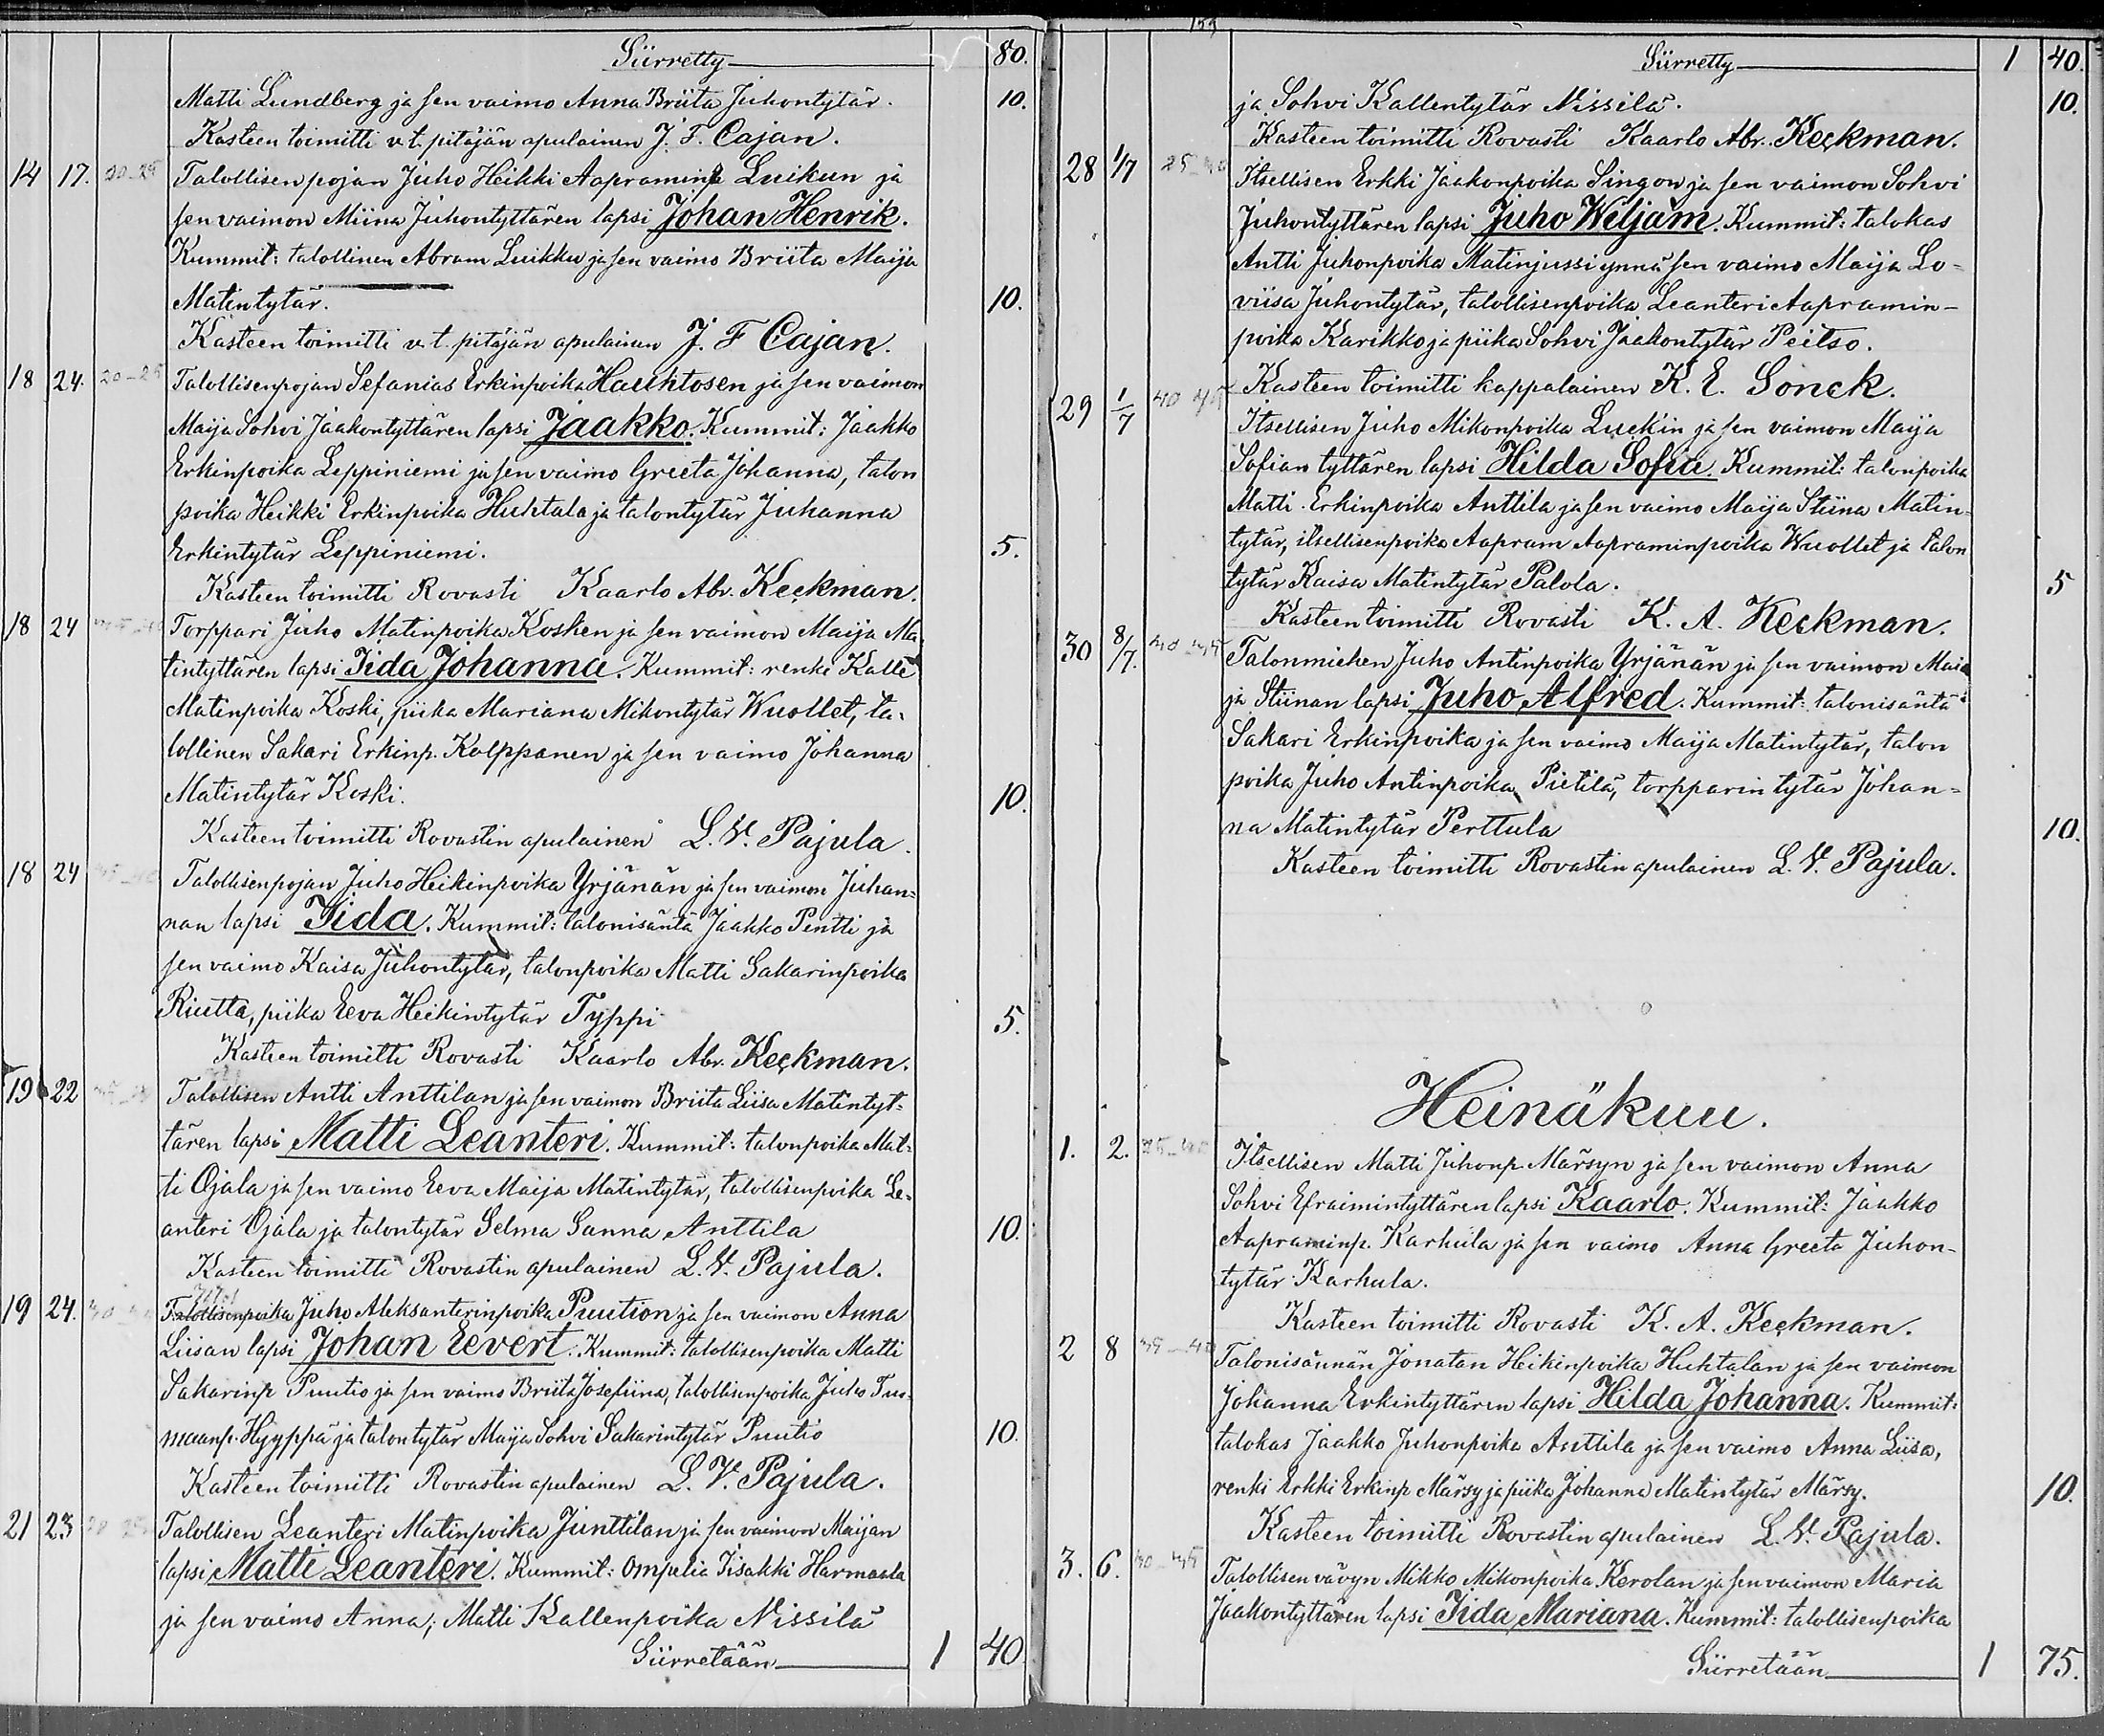 Siirretty 80.
Matti Lundberg ja sen vaimo Anna Briita Juhontytär. 10.
Kasteen toimitti v. t. pitäjän apulainen J. F. Cajan.
14 17. 20-25 Talollisen pojan Juho Heikki Aapraminp Luikun ja
sen vaimon Miina Juhontyttären lapsi Johan Henrik.
Kummit: talollinen Abram Luikku ja sen vaimo Briita Maija
Matintytär. 10.
Kasteen toimitti v. t. pitäjän apulainen J. F Cajan.
18 24. 20-25 Talollisenpojan Sefanias Erkinpoika Hauhtosen ja sen vaimon
Maija Sohvi Jaakontyttären lapsi Jaakko. Kummit: Jaakko
Erkinpoika Leppiniemi ja sen vaimo Greeta Johanna, talon
poika Heikki Erkinpoika Huhtala ja talontytär Juhanna
Erkintytär Leppiniemi. 5.
Kasteen toimitti Rovasti Kaarlo Abr. Keckman.
18 24 Torppari Juho Matinpoika Kosken ja sen vaimon Maija Ma-
tintyttären lapsi Iida Johanna. Kummit: renki Kalle
Matinpoika Koski, piika Mariana Mikontytär Wuollet, ta-
lollinen Sakari Erkinp. Kolppanen ja sen vaimo Johanna
Matintytär Koski. 10.
Kasteen toimitti Rovastin apulainen L. V. Pajula.
18 24 Talollisenpojan Juho Heikinpoika Yrjänän ja sen vaimon Juhan-
nan lapsi Iida. Kummit: talonisäntä Jaakko Pentti ja
sen vaimo Kaisa Juhontytär, talonpoika Matti Sakarinpoika
Riutta, piika Eeva Heikintytär Typpi 5.
Kasteen toimitti Rovasti Kaarlo Abr. Keckman.
19 22 Talollisen Antti Anttilan ja sen vaimon Briita Liisa Matintyt-
tären lapsi Matti Leanteri. Kummit: talonpoika Mat-
ti Ojala ja sen vaimo Eeva Maija Matintytär, talollisenpoika Le-
anteri Ojala ja talontytär Selma Sanna Anttila 10.
Kasteen toimitti Rovastin apulainen L. V. Pajula.
19 24. Talollisenpoika Juho Aleksanterinpoika Puution ja sen vaimon Anna
Liisan lapsi Johan Eevert. Kummit: talollisenpoika Matti
Sakarinp Puutio ja sen vaimo Briita Josefiina, talollisenpoika Juho Tuo-
maanp. Hyyppä ja talontytär Maija Sohvi Sakarintytär Puutio 10.
Kasteen toimitti Rovastin apulainen L. V. Pajula.
21 23 Talollisen Leanteri Matinpoika Junttilan ja sen vaimon Maijan
lapsi Matti Leanteri. Kummit: Ompelia Iisakki Harmaala
ja sen vaimo Anna; Matti Kallenpoika Nissilä
Siirretään 1 40.
Siirretty 1 40.
ja Sohvi Kallentytär Nissilä. 10.
Kasteen toimitti Rovasti Kaarlo Abr. Keckman.
28 1/7 Itsellisen Erkki Jaakonpoika Singon ja sen vaimon Sohvi
Juhontyttären lapsi Juho Wiljam. Kummit: talokas
Antti Juhonpoika Matinjussi ynnä sen vaimo Maija Lo-
viisa Juhontytär, talollisenpoika Leanteri Aapramin-
poika Karikko ja piika Sohvi Jaakontytär Peitso.
Kasteen toimitti kappalainen K. E. Sonck.
29 1/7 Itsellisen Juho Mikonpoika Luckin ja sen vaimon Maija
Sofian tyttären lapsi Hilda Sofia. Kummit: talonpoika
Matti Erkinpoika Anttila ja sen vaimo Maija Stiina Matin-
tytär, itsellisenpoika Aapram Aapraminpoika Wuollet ja talon
tytär Kaisa Matintytär Palola. 5
Kasteen toimitti Rovasti K. A. Keckman.
30 8/7. Talonmiehen Juho Antinpoika Yrjänän ja sen vaimon Mai
ja Stiinan lapsi Juho Alfred. Kummit: talonisäntä
Sakari Erkinpoika ja sen vaimo Maija Matintytär, talon
poika Juho Antinpoika Pietilä, torpparin tytär Johan-
na Matintytär Perttula 10.
Kasteen toimitti Rovastin apulainen L. V. Pajula.
Heinäkuu.
1. 2. Itsellisen Matti Juhonp Märsyn ja sen vaimon Anna
Sohvi Efraimintyttären lapsi Kaarlo. Kummit: Jaakko
Aapraminp. Karhula ja sen vaimo Anna Greeta Juhon-
tytär Karhula.
Kasteen toimitti Rovasti K. A. Keckman.
2 8 Talonisännän Jonatan Heikinpoika Huhtalan ja sen vaimon
Johanna Erkintyttären lapsi Hilda Johanna. Kummit:
talokas Jaakko Juhonpoika Anttila ja sen vaimo Anna Liisa,
renki Erkki Erkinp Märsy ja piika Johanna Matintytär Märsy. 10.
Kasteen toimitti Rovastin apulainen L. V. Pajula.
3. 6. Talollisen vävyn Mikko Mikonpoika Kerolan ja sen vaimon Maria
Jaakontyttären lapsi Iida Mariana. Kummit: talollisenpoika
Siirretään 1 75.